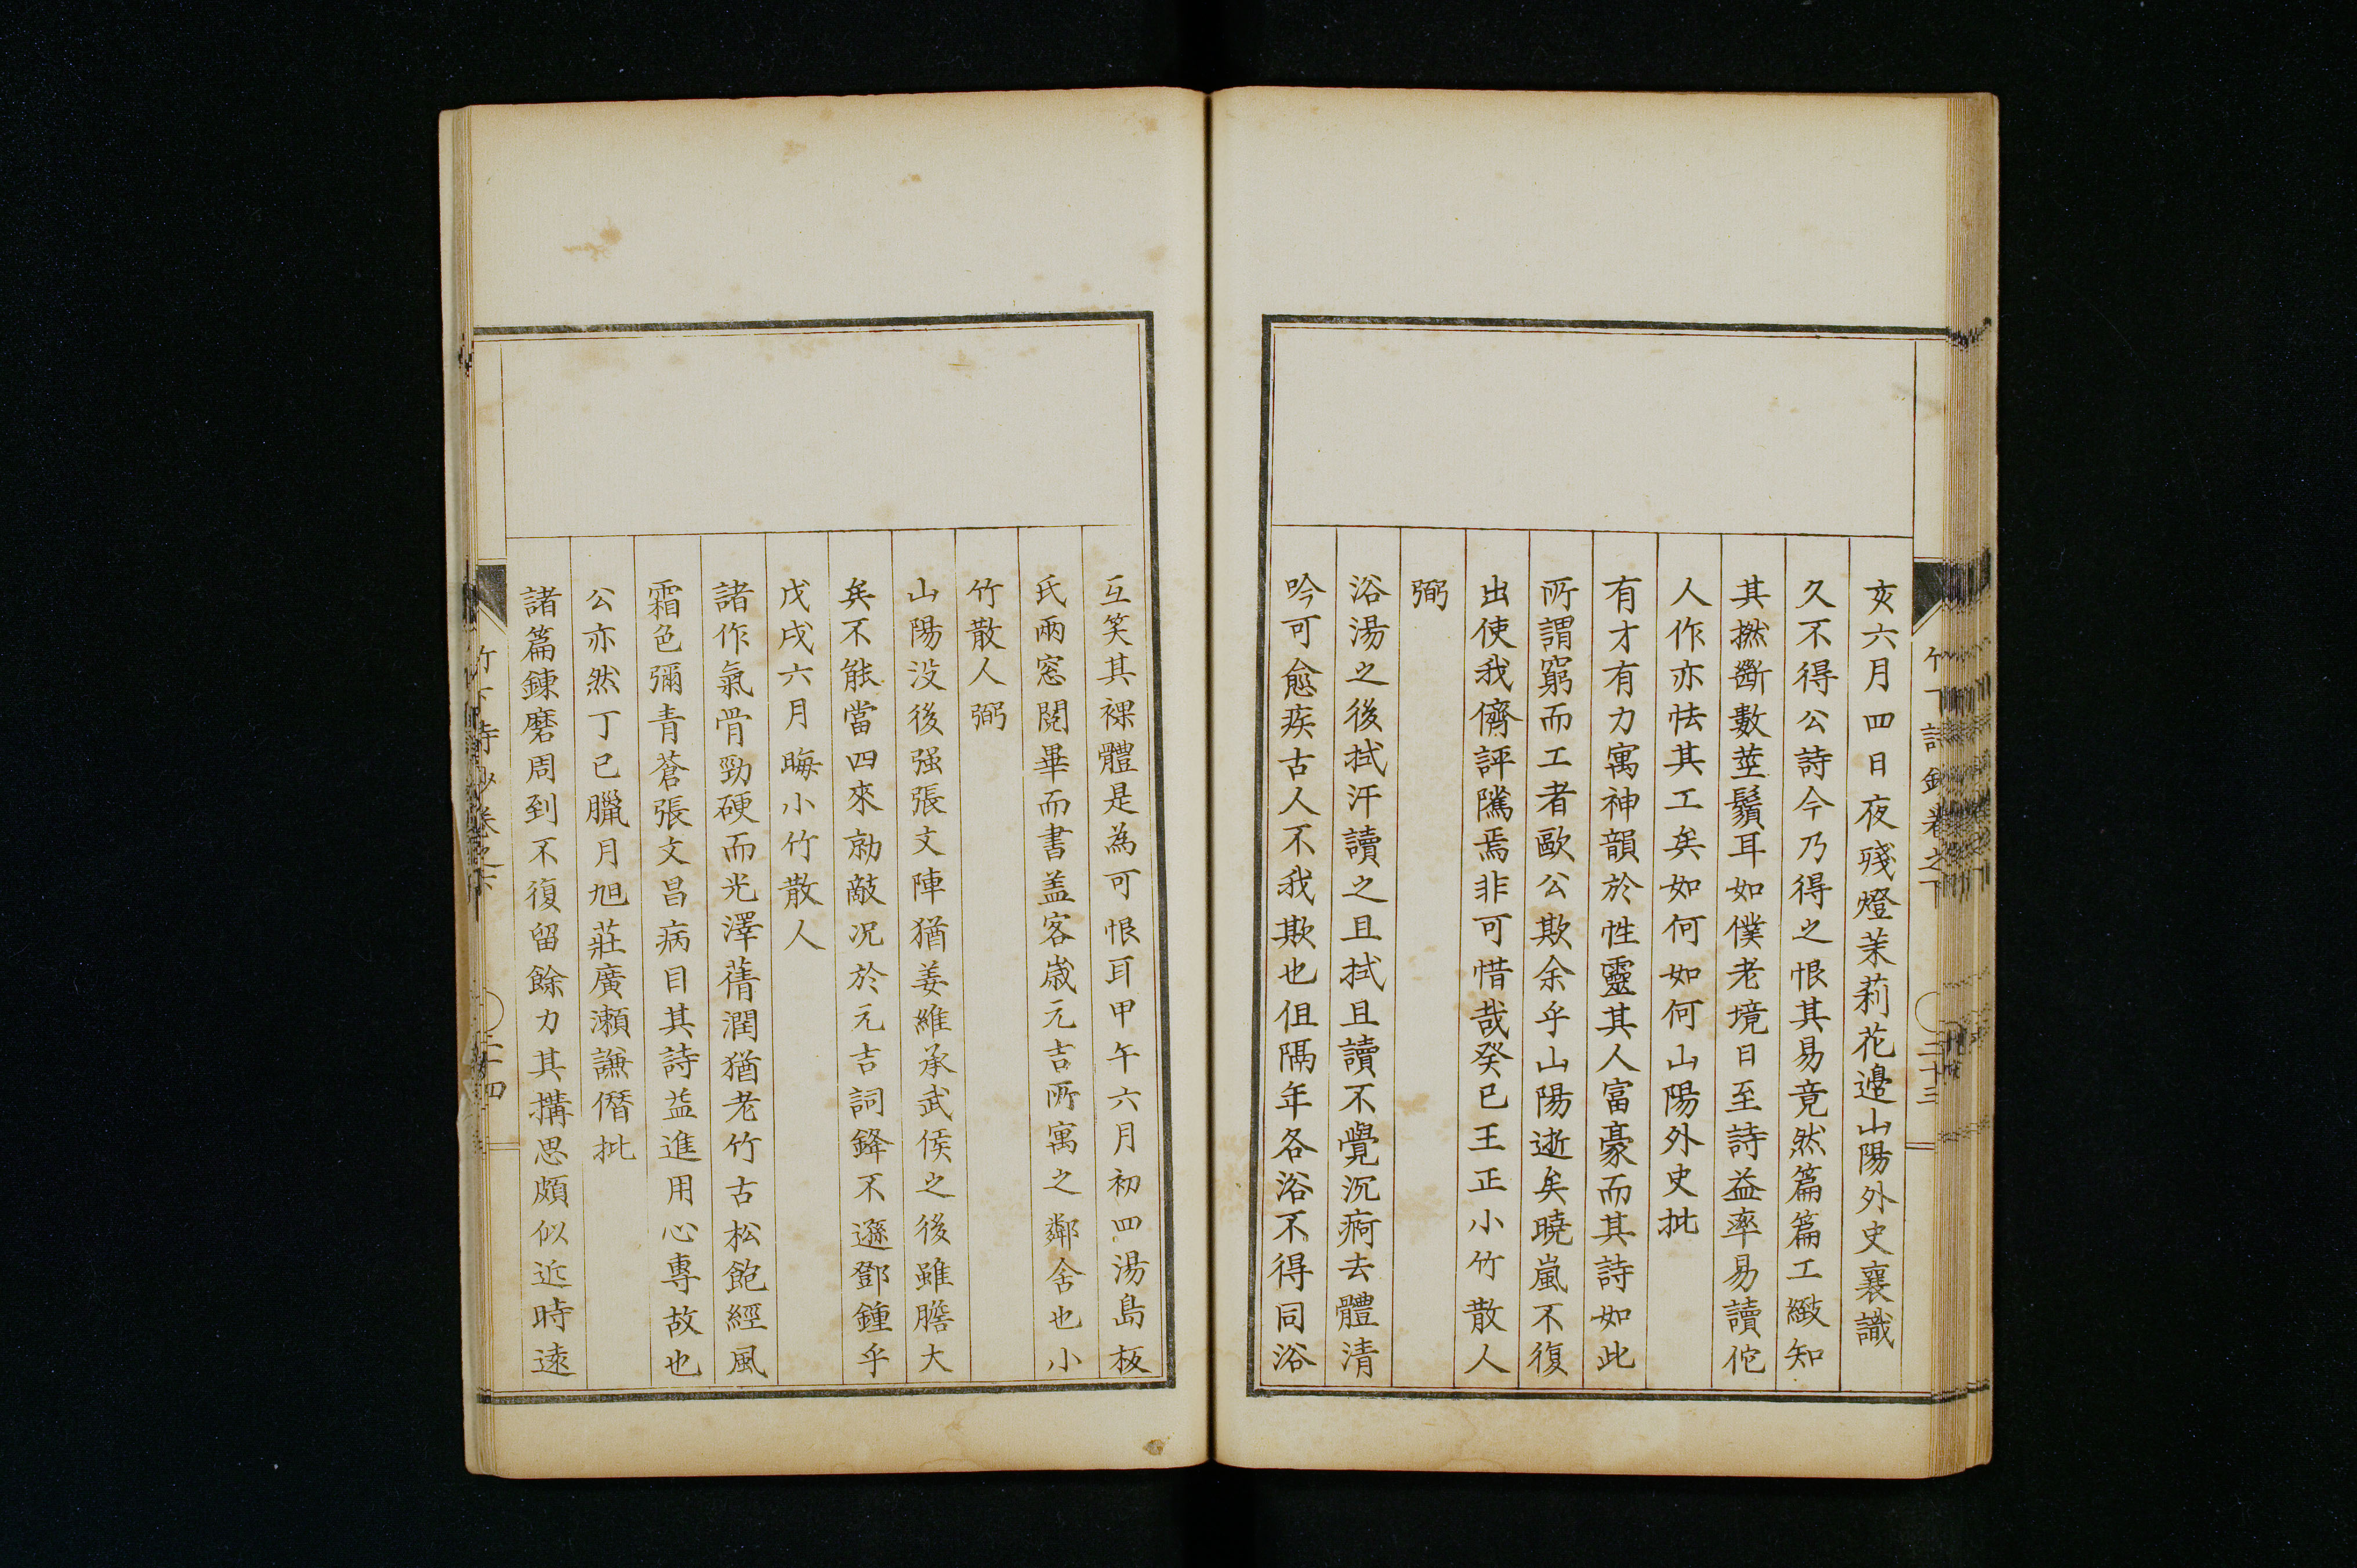 亥六月四日夜殘燈茉莉花邊山陽外史襄識
久不得公詩今乃得之恨其易竟然篇篇工緻知
其撚斷數莖鬚耳如僕老境日至詩益率易讀佗
人作亦怯其工矣如何如何山陽外史批
有才有力寓神韻於性靈其人富豪而其詩如此
所謂窮而工者歐公欺余乎山陽逝矣曉嵐不復
出使我儕評隲焉非可惜哉癸巳王正小竹散人
弼
浴湯之後拭汗讀之且拭且讀不覺沉痾去體清
吟可愈疾古人不我欺也但隔年各浴不得同浴
竹下詩鈔卷之下
二十三
互笑其裸體是為可恨耳甲午六月初四湯島板
氏兩窓閱畢而書盖客嵗元吉所寓之鄰舍也小
竹散人弼
山陽没後强張文陣猶姜維承武侯之後雖膽大
矣不能當四來勍敵况於元吉詞鋒不遜鄧鍾乎
戊戌六月晦小竹散人
諸作氣骨勁硬而光澤蒨潤猶老竹古松飽經風
霜色彌青蒼張文昌病目其詩益進用心專故也
公亦然丁巳臘月旭莊廣瀨謙僭批
諸篇鍊磨周到不復留餘力其搆思頗似近時遠
竹下詩鈔卷之下
二十四